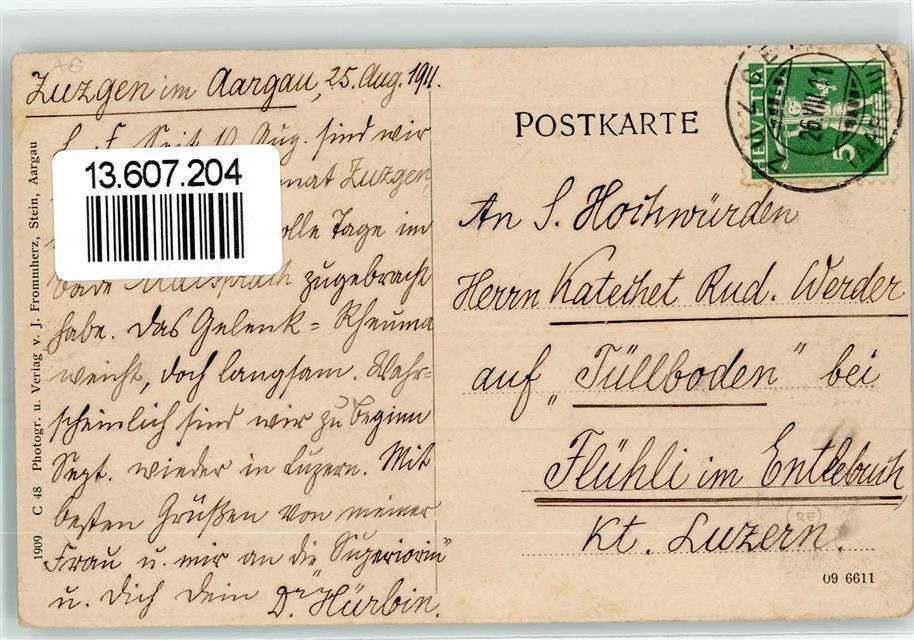 Zuzgen im Aargau, 25. Aug. 1911.
L. F. Seit 10. Aug. sind wir
Zuzgen,
volle Tage im
Bade zugebracht
habe. Das Gelenk=Rheuma
weicht, doch langsam. Wahr=
scheinlich sind wir zu Beginn
Sept. wieder in Luzern. Mit
besten Grüßen von meiner
Frau u. mir an die
u. Dich Dein D. Hürbin.
13.607.204
1909 C 48 Photogr. u. Verlag v. J. Frommherz, Stein, Aargau
POSTKARTE
HELVETIA
5
26.VIII.11
An S. Hochwürden
Herrn Katechet Rud. Werder
auf „Tüllboden" bei
Flühli im Entlebuch
Kt. Luzern.
RE
09 6611